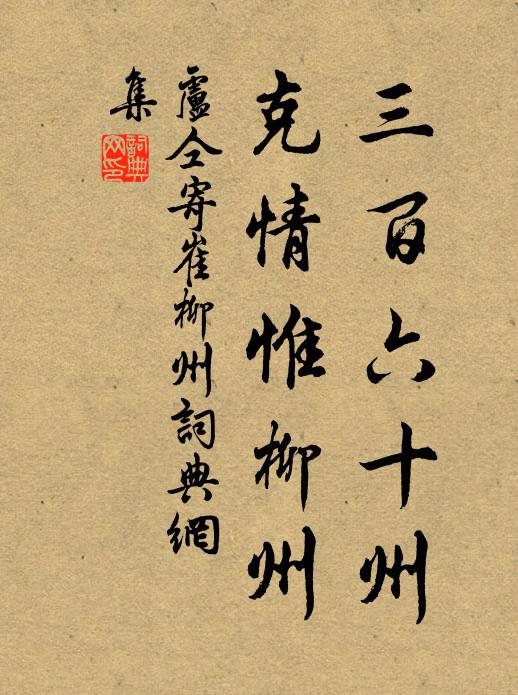 三百六十州
克情惟柳州
盧仝寄崔柳州詞典網
集
詞典
网印